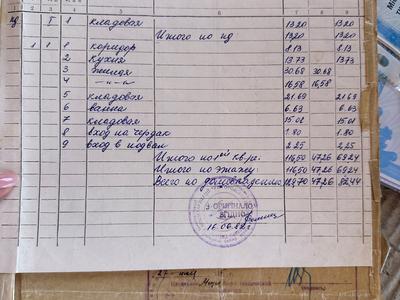 1 2 3 4 5 6 7 8 9
пд I 1 кладовая 13.20 13.20
Итого по пд 13.20 13.20
1 1 1 коридор 8.13 8.13
2 кухня 13.73 13.73
3 жилая 30.68 30.68
4 -"- 16,58 16,58
5 кладовая 21.69 21.69
6 ванна 6.63 6.63
7 кладовая 15.01 15.01
8 вход на чердак 1.80 1.80
9 вход в подвал 2.25 2.25
Итого по 1ой кв.ре: 116,50 47.26 69.24
Итого по этажу: 116,50 47.26 69.24
Всего по домовладению 129.70 47.26 82.44
З ОРИГІНАЛОМ
ЗГІДНО